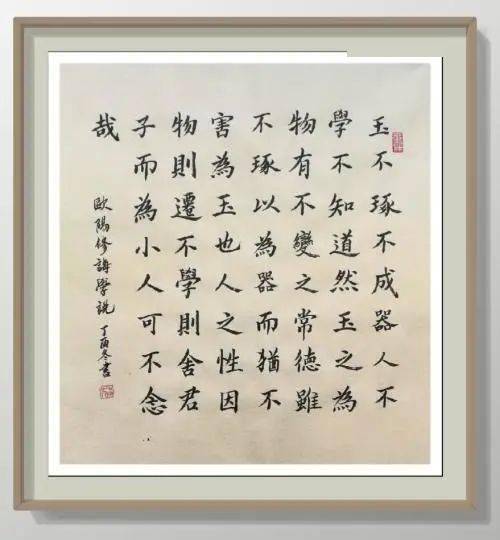 玉不琢不成器人不
學不知道然玉之為
物有不變之常德雖
不琢以為器而猶不
害為玉也人之性因
物則遷不學則舍君
子而為小人可不念
哉
歐陽修誨學説 丁酉冬書